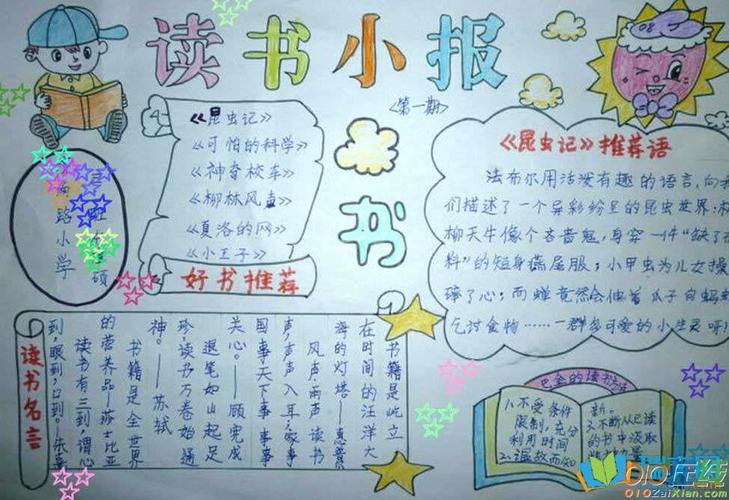 读书小报
《第一期》
08
《昆虫记》
《可怕的科学》
《神奇校车》
《柳林风声》
《夏洛的网》
《小王子》
好书推荐
路小学
硕
书
《昆虫记》推荐语
法布尔用活泼有趣的语言,向我
们描述了一个异彩纷呈的昆虫世界:
柳天牛像个吝啬鬼,身穿一件“缺了
料”的短身燕尾服;小甲虫为儿女操
碎了心;而蝉竟然会伸着爪子向蚂蚁
乞讨食物……一群多可爱的小生灵呀!
读书名言
书籍是此立
在时间的汪洋大
海的灯塔——惠普
风声雨声读书
声,声声入耳;家事
国事天下事事事
关心。——顾宪成
退笔如山起足
珍,读书万卷始通
神。——苏轼
书籍是全世界
的营养品——莎士比亚
读书有三到:谓心
到,眼到,口到。——朱熹
巴金的读书方法
1、不受条件
限制,充分
利用时间
2、温故而知
新。
3、不断从已读
的书中汲取
010在线
010ZaiXian.com